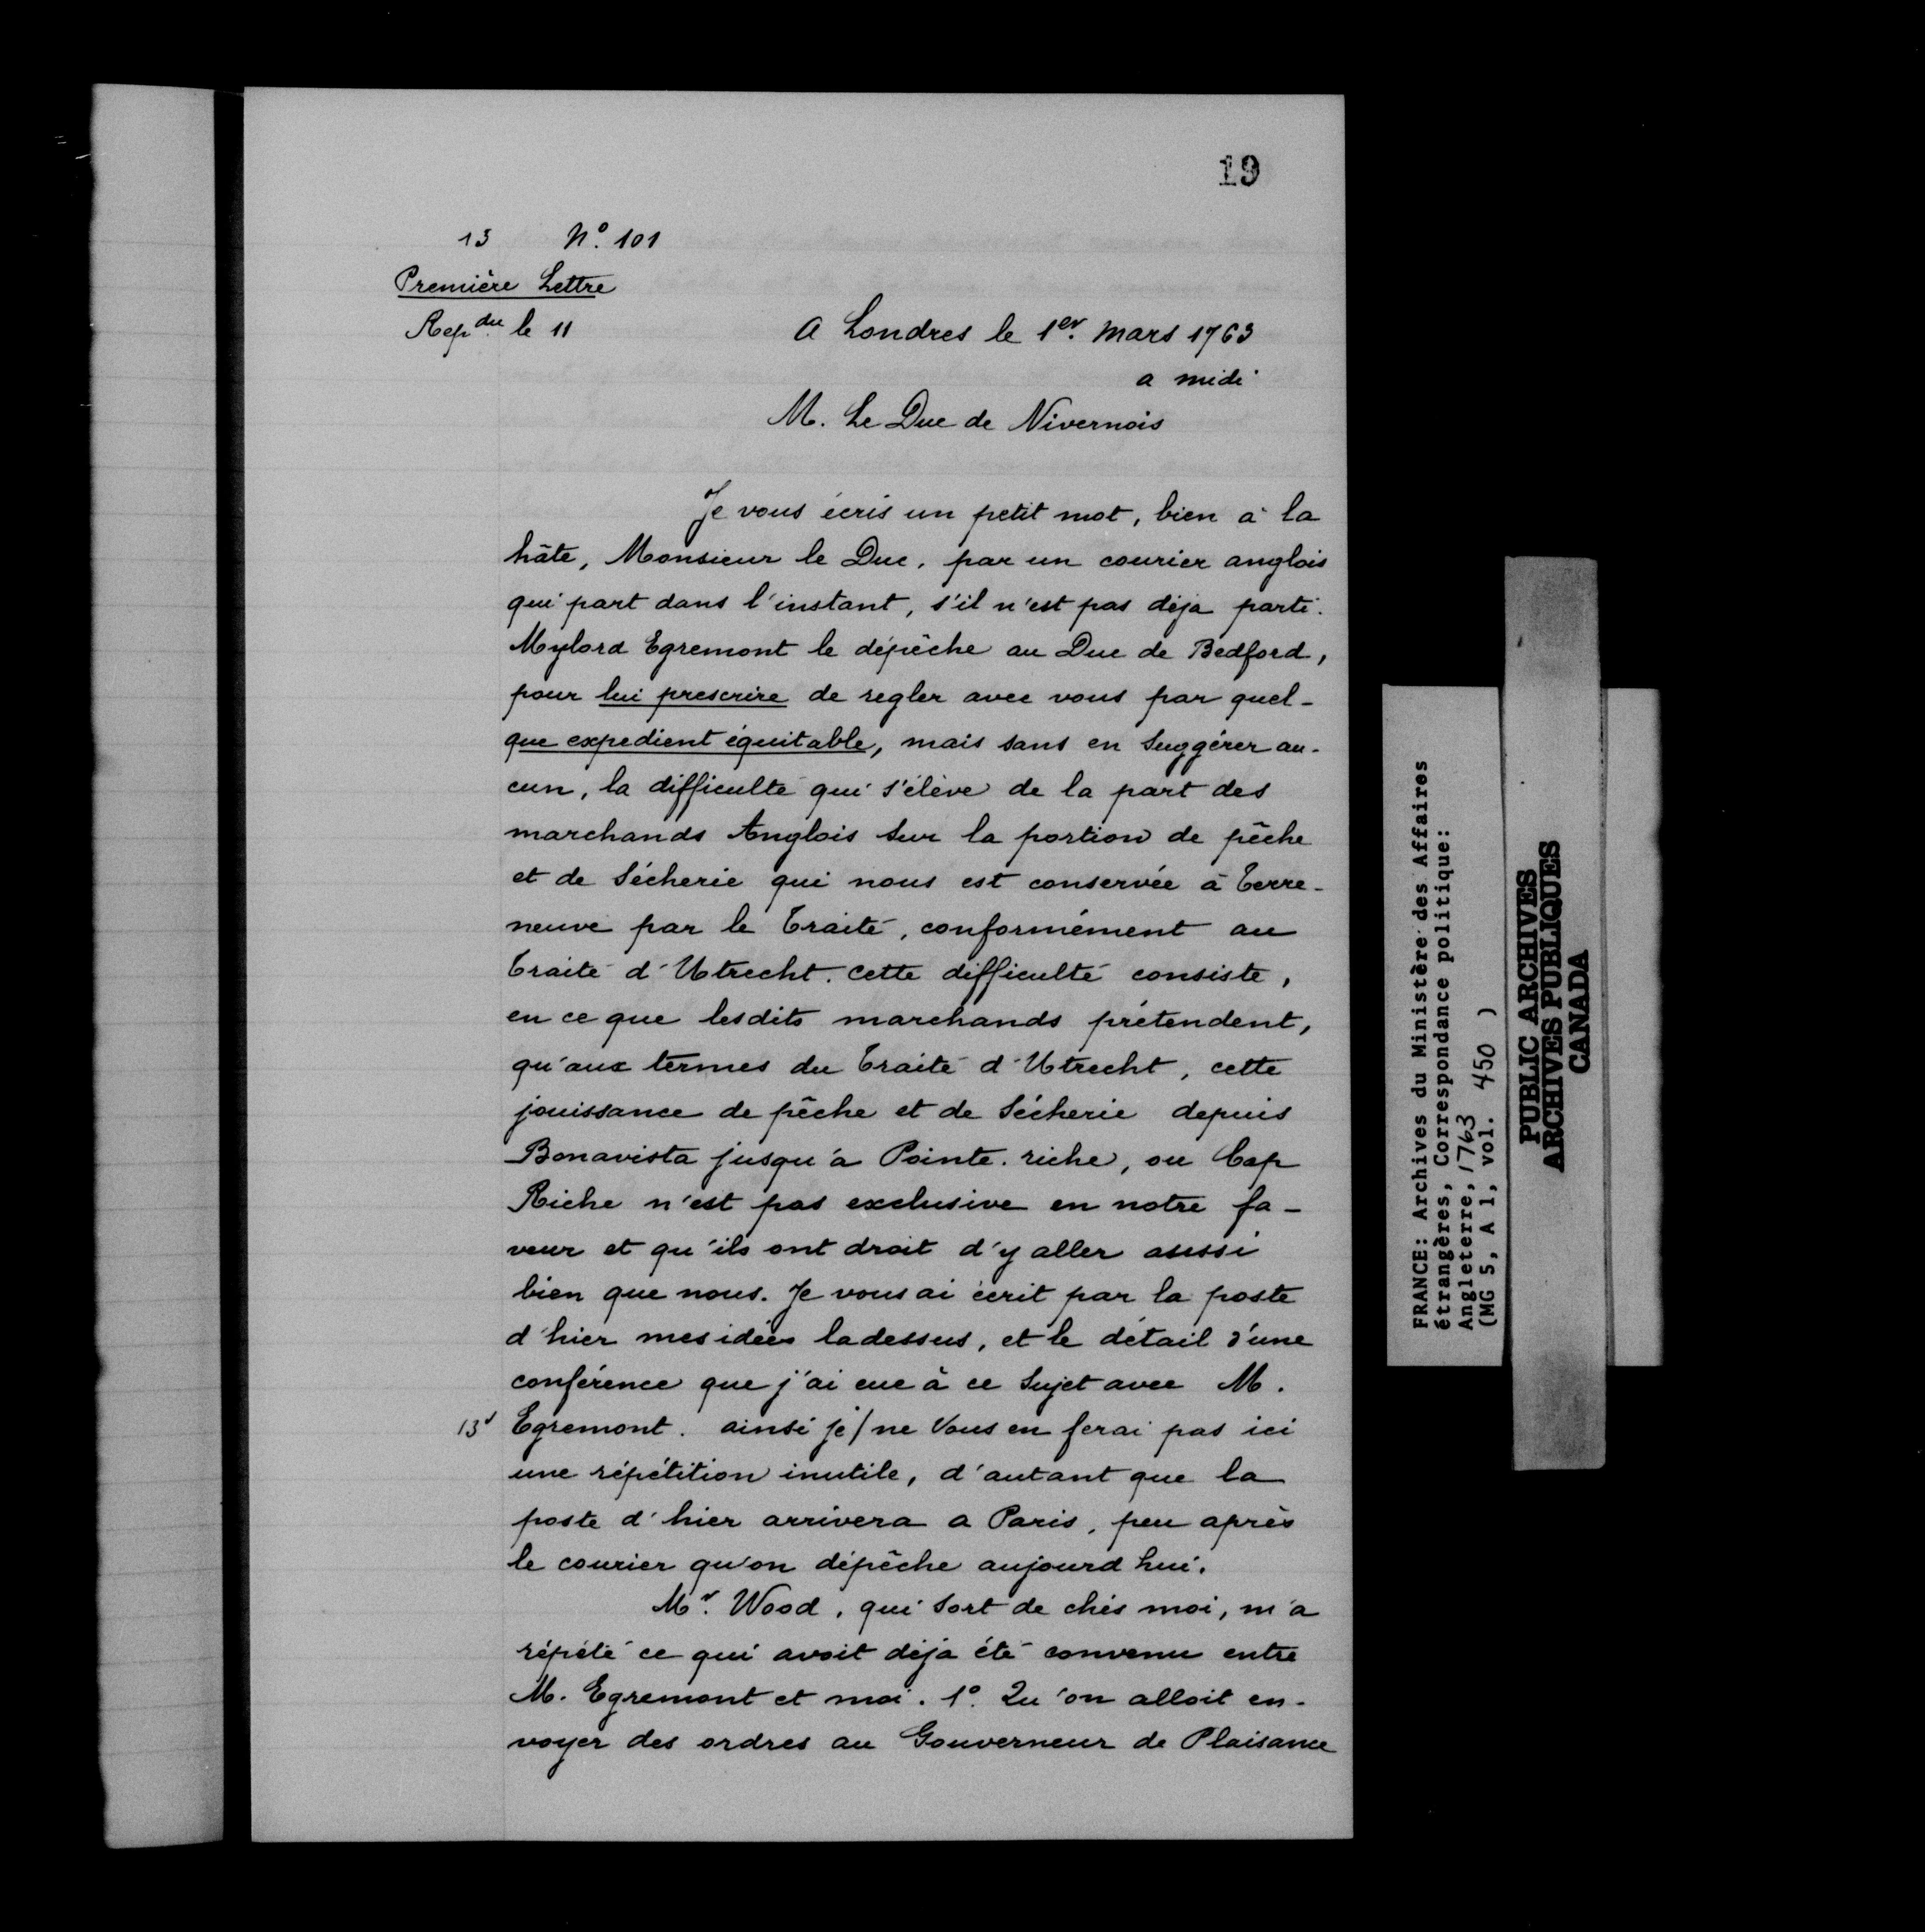 19
13 N.º 101
Première Lettre
Rep.due le 11
A Londres le 1er. Mars 1763
a midi
M. Le Duc de Nivernois
Je vous écris un petit mot, bien à la
hâte, Monsieur le Duc, par un courier anglois
qui part dans l'instant, s'il n'est pas déja parti.
Mylord Egremont le dépêche au Duc de Bedford,
pour lui prescrire de regler avec vous par quel-
que expedient équitable, mais sans en Suggérer au-
cun, la difficulté qui s'élève de la part des
marchands Anglois Sur la portion de pêche
et de Sécherie qui nous est conservée à Terre-
neuve par le Traité, conformément au
Traité d'Utrecht. cette difficulté consiste,
en ce que lesdits marchands prétendent,
qu'aux termes du Traité d'Utrecht, cette
jouissance de pêche et de Sécherie depuis
Bonavista jusqu'a Pointe. riche, ou Cap
Riche n'est pas exclusive en notre fa-
veur et qu'ils ont droit d'y aller aussi
bien que nous. Je vous ai écrit par la poste
d'hier mes idées ladessus, et le détail d'une
conférence que j'ai eue à ce Sujet avec M.
13v Egremont. ainsi je/ne Vous en ferai pas ici
une répétition inutile, d'autant que la
poste d'hier arrivera a Paris, peu après
le courier qu'on dépêche aujourd hui.
Mr. Wood, qui Sort de chés moi, m'a
répété ce qui avoit déja été convenu entre
M. Egremont et moi. 1º. Qu'on alloit en-
voyer des ordres au Gouverneur de Plaisance
FRANCE: Archives du Ministère des Affaires
étrangères, Correspondance politique:
Angleterre, 1763
(MG 5, A 1, vol. 450 )
PUBLIC ARCHIVES
ARCHIVES PUBLIQUES
CANADA